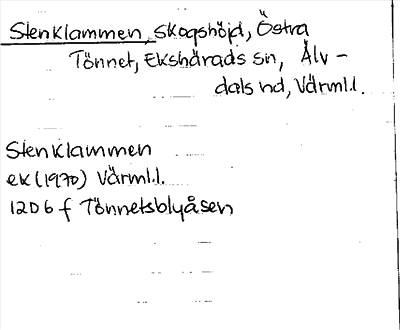 Stenklammen, skogshöjd, Östra
Tönnet, Ekshärads sn, Älv-
dals hd, Värml.l.
Stenklammen
ek (1970) Värml.l.
12D 6 f Tönnetsblyåsen